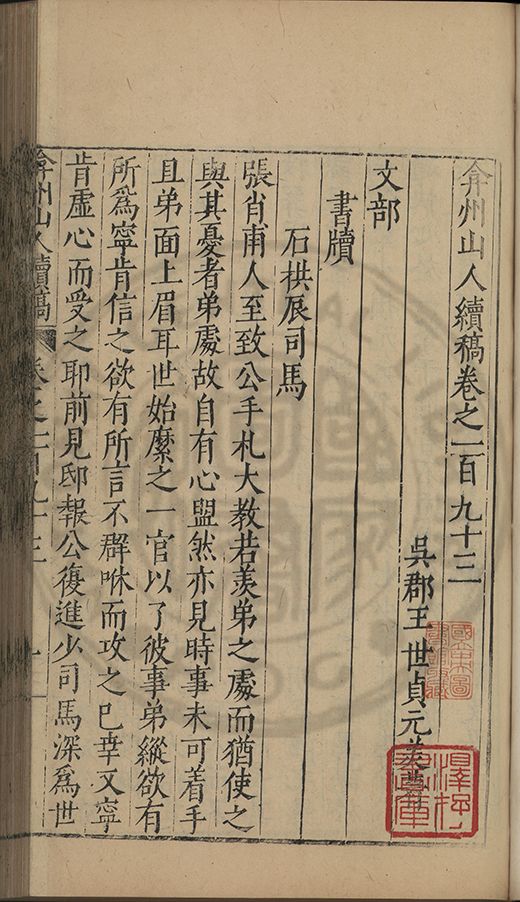 弇州山人續稿卷之一百九十三
吳郡王世貞元美著
文部
書牘
石拱辰司馬
張肖甫人至致公手札大教若羨弟之處而猶使之
與其憂者弟處故自有心盟然亦見時事未可着手
且弟面上眉耳世始縻之一官以了彼事弟縱欲有
所爲寧肯信之欲有所言不群咻而攻之已幸又寧
肯虛心而受之耶前見邸報公復進少司馬深爲世
弇州山人續稿
卷之一百九十三
一
國立中央圖書館收藏
澤存書庫